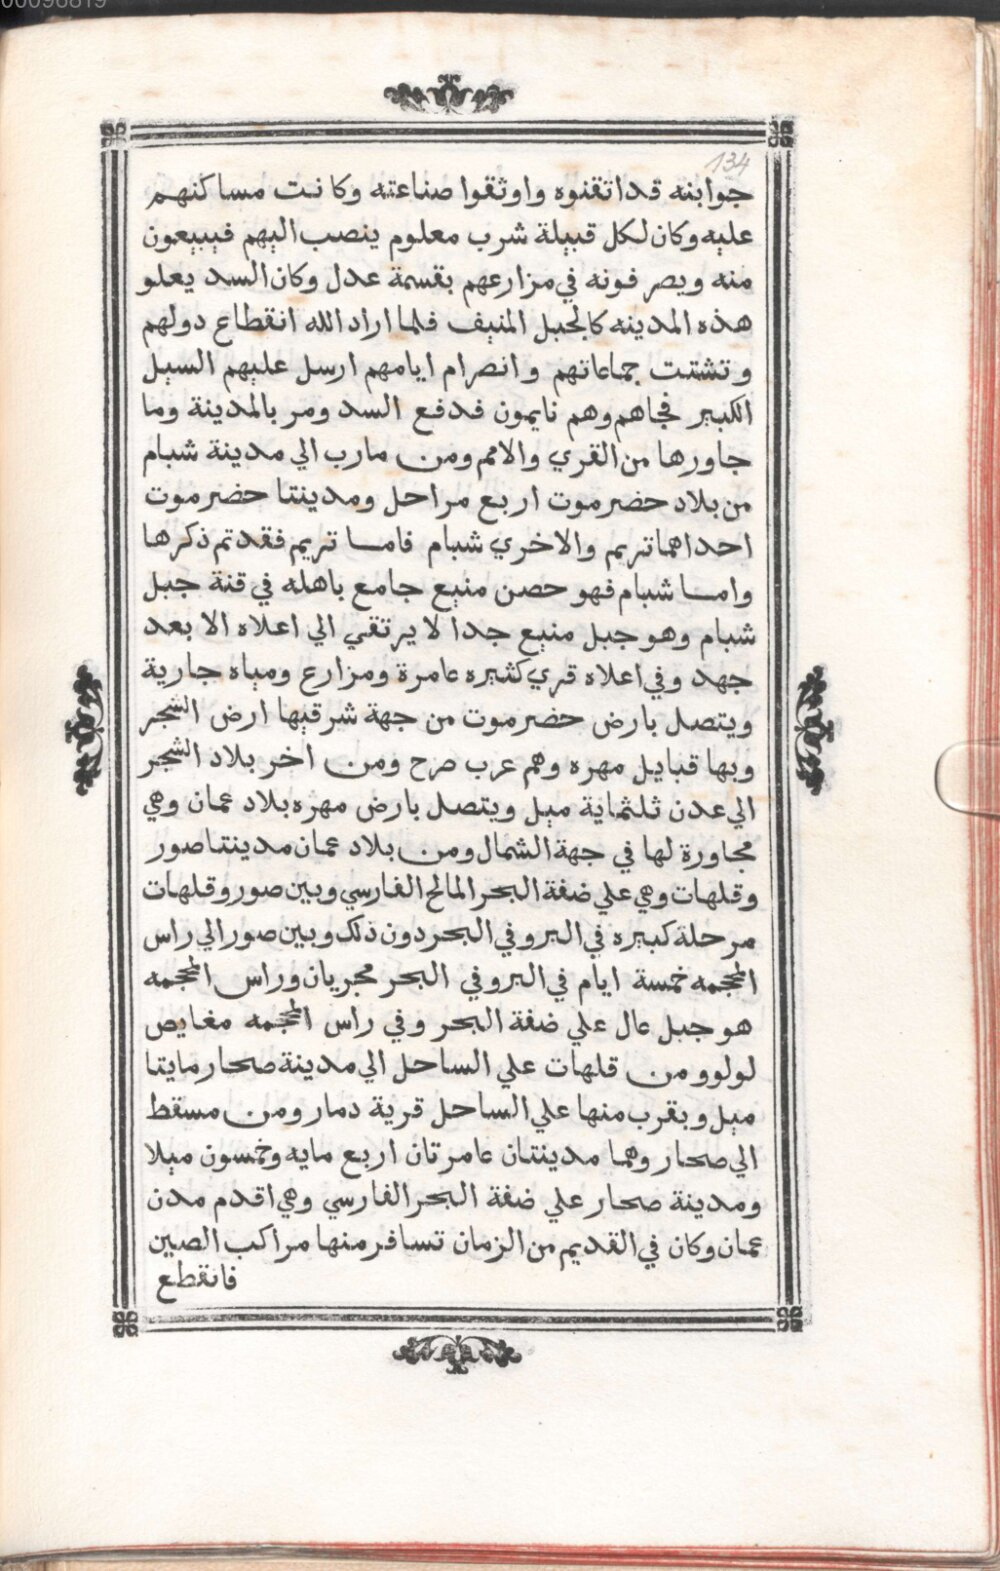 00096819
134
جوابنه قد اتقنوه واوثقوا صناعته وكانت مساكنهم
عليه وكان لكل قبيلة شرب معلوم ينصب اليهم فيبيعون
منه ويصرفونه في مزارعهم بقسمة عدل وكان السد يعلو
هذه المدينه كالجبل المنيف فلما اراد الله انقطاع دولهم
وتشتت جماعاتهم وانصرام ايامهم ارسل عليهم السيل
الكبير فجاهم وهم نايمون فدفع السد ومر بالمدينة وما
جاورها من القري والامم ومن مارب الي مدينة شبام
من بلاد حضرموت اربع مراحل ومدينتا حضرموت
احداهما تريم والاخري شبام فاما تريم فقد تم ذكرها
واما شبام فهو حصن منيع جامع باهله في قنة جبل
شبام وهو جبل منيع جدا لا يرتقي الي اعلاه الا بعد
جهد وفي اعلاه قري كثيره عامرة ومزارع ومياه جارية
ويتصل بارض حضرموت من جهة شرقيها ارض الشجر
وبها قبايل مهره وهم عرب صرح ومن اخر بلاد الشجر
الي عدن ثلثماية ميل ويتصل بارض مهره بلاد عمان وهي
مجاورة لها في جهة الشمال ومن بلاد عمان مدينتا صور
وقلهات وهي علي ضفة البحر المالح الفارسي وبين صور وقلهات
مرحلة كبيره في البر وفي البحر دون ذلك وبين صور الي راس
المحجمه خمسة ايام في البر وفي البحر مجريان وراس المحجمه
هو جبل عال علي ضفة البحر وفي راس المحجمه مغايص
لولوو من قلهات علي الساحل الي مدينة صحار مايتا
ميل وبقرب منها علي الساحل قرية دمار ومن مسقط
الي صحار وهما مدينتان عامرتان اربع مايه وخمسون ميلا
ومدينة صحار علي ضفة البحر الفارسي وهي اقدم مدن
عمان وكان في القديم من الزمان تسافر منها مراكب الصين
فانقطع